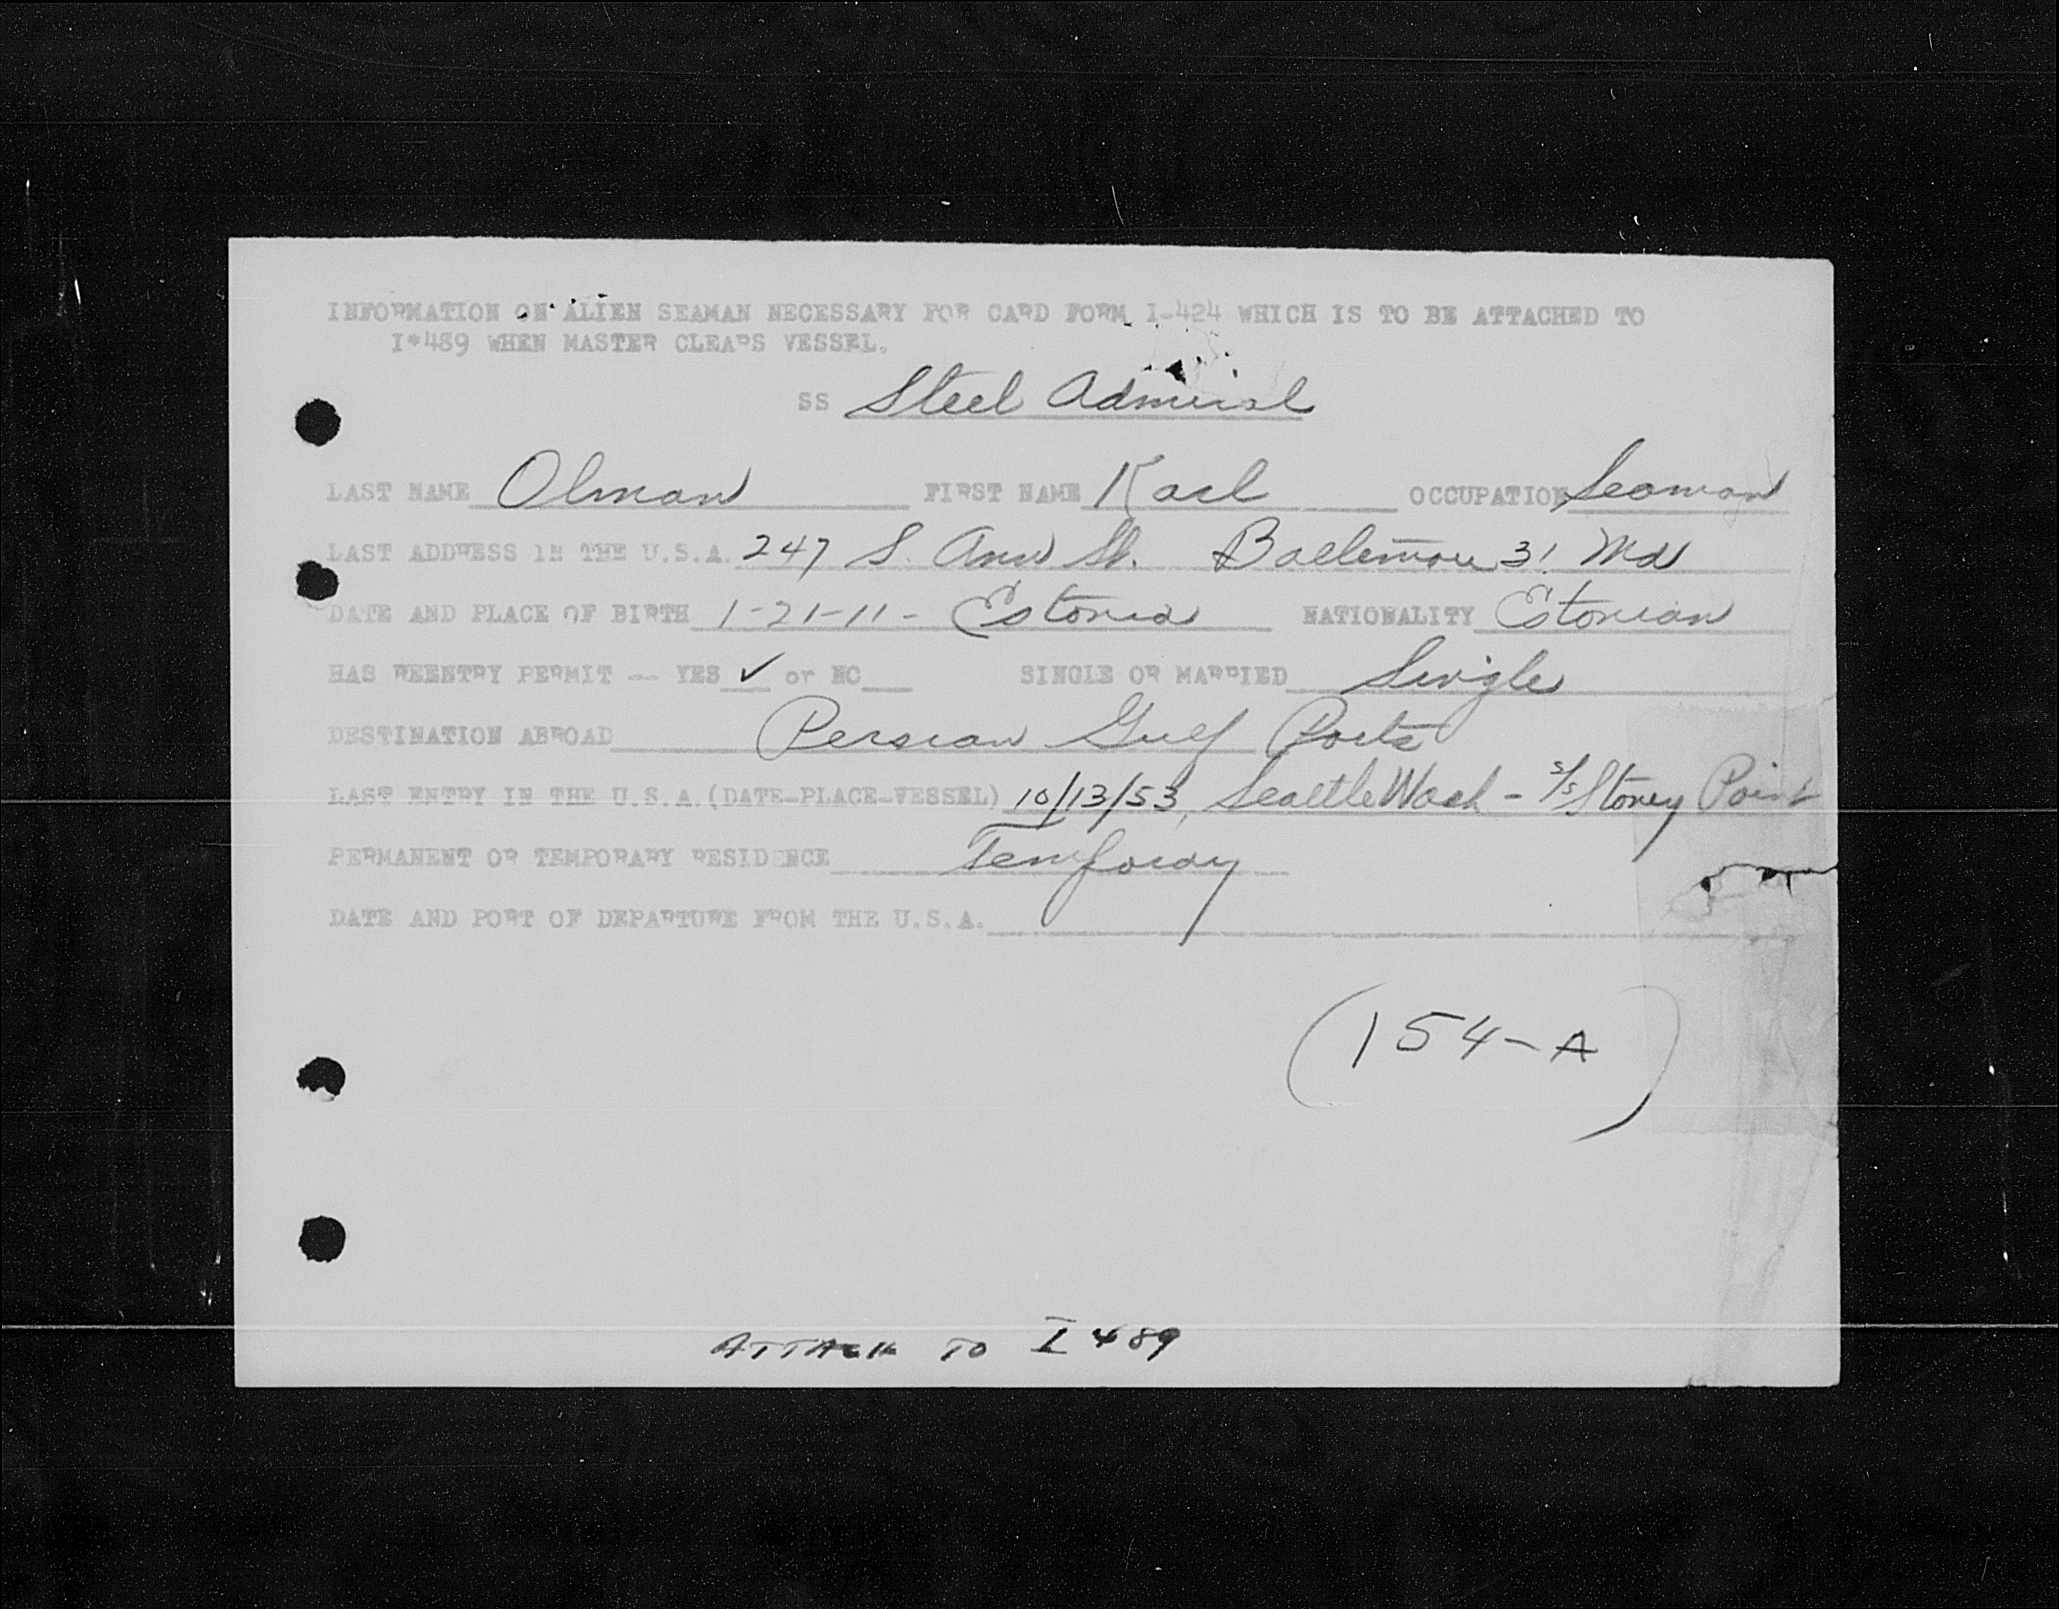 INFORMATION ON ALIEN SEAMAN NECESSARY FOR CARD FORM I-424 WHICH IS TO BE ATTACHED TO
I*489 WHEN MASTER CLEARS VESSEL.
SS Steel Admiral
LAST NAME Olman FIRST NAME Karl OCCUPATION Seaman
LAST ADDRESS IN THE U.S.A. 247 S. Ann St. Baltimore 31 Md
DATE AND PLACE OF BIRTH 1-21-11- Estonia NATIONALITY Estonian
HAS REENTRY PERMIT -- YES ✓ or NO SINGLE OR MARRIED Single
DESTINATION ABROAD Persian Gulf Ports
LAST ENTRY IN THE U.S.A. (DATE-PLACE-VESSEL) 10/13/53, Seattle Wash - S/S Stoney Point
PERMANENT OR TEMPORARY RESIDENCE Temporary
DATE AND PORT OF DEPARTURE FROM THE U.S.A.
(154-A)
ATTACH TO I 489